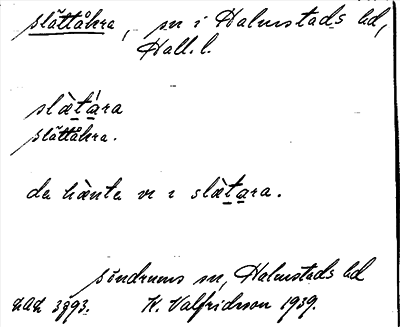 slättåkra, sn i Halmstads hd,
Hall. l.
slæ̀tára
slättåkra.
da hànta vi i slæ̀tara.
söndrums sn, Halmstads hd
3993. K. Valfridsson 1939.